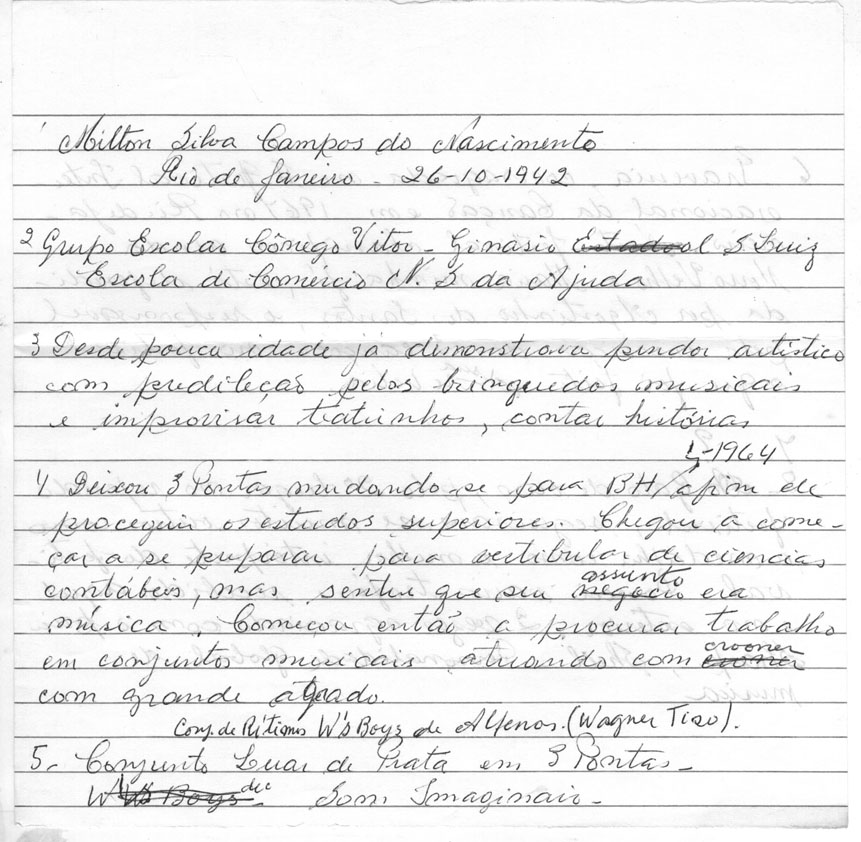 1 Milton Silva Campos do Nascimento
Rio de Janeiro - 26-10-1942
2 Grupo Escolar Cônego Vitor - Ginásio Estadual S Luiz
Escola de Comércio N. S da Ajuda
3 Desde pouca idade já demonstrava pendor artístico
com predileção pelos brinquedos musicais
e improvisar teatrinhos, contar histórias
1964
4 Deixou 3 Pontas mudando-se para BH/ afim de
proceguir os estudos superiores. Chegou a come-
çar a se preparar para vestibular de ciencias
assunto
contábeis, mas sentiu que seu negocio era
música. Começou então a procurar trabalho
crooner
em conjuntos musicais atuando com crooner
com grande agrado.
Conj. de Rítimos W's Boys de Alfenas. (Wagner Tiso).
5. Conjunto Luar de Prata em 3 Pontas -
W's Boys de Som Imaginario -